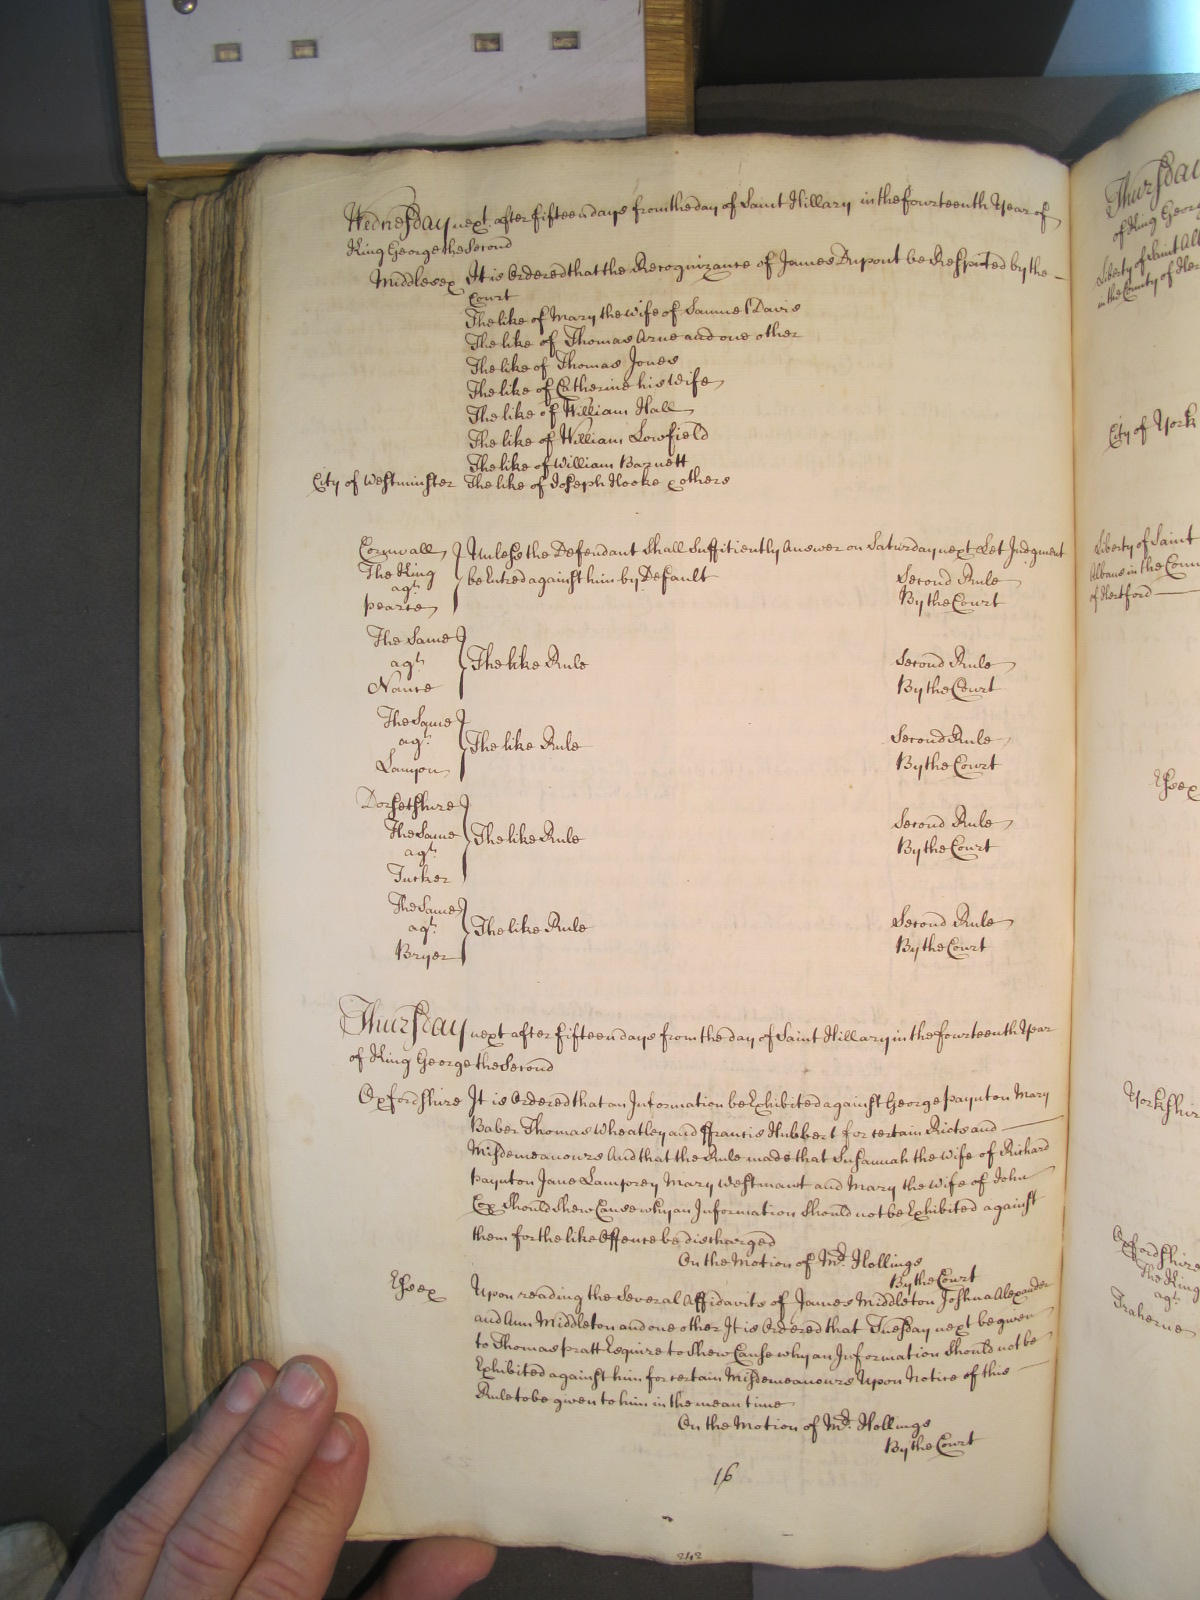 Wednesday next after fifteen days from the day of Saint Hillary in the fourteenth Year of
King George the Second
Middlesex It is Ordered that the Recognizance of James Dupont be Respited by the
Court
The like of Mary the Wife of Samuel Davis
The like of Thomas Arne and one other
The like of Thomas Jones
The like of Catherine his Wife
The like of William Hall
The like of William Lowfield
The like of William Barnett
City of Westminster The like of Joseph Hooke & others
Cornwall Unless the Defendant Shall Suffitiently Answer on Saturday next Let Judgment
The King be Entred against him by Default Second Rule
agt.
Pearce By the Court
The Same
agt. The like Rule Second Rule
Nance By the Court
The Same
agt. The like Rule Second Rule
Lanyon By the Court
Dorsetshire
The Same The like Rule Second Rule
agt. By the Court
Tucker
The Same
agt. The like Rule Second Rule
Bryer By the Court
Thursday next after fifteen days from the day of Saint Hillary in the fourteenth Year
of King George the Second
Oxfordshire It is Ordered that an Information be Exhibited against George Paynton Mary
Baber Thomas Wheatley and Francis Hubbert for certain Riots and
Misdemeanours And that the Rule made that Susannah the Wife of Richard
Paynton Jane Lamprey Mary and Mary the Wife of John
Cox Should Shew Cause why an Information Should not be Exhibited against
them for the like Offence be discharged
On the Motion of Mr. Hollings
By the Court
Essex Upon reading the Several Affidavits of James Middleton Joshua Alexander
and Ann Middleton and one other It is Ordered that Tuesday next be given
to Thomas Pratt Esquire to Shew Cause why an Information Should not be
Exhibited against him for certain Misdemeanours Upon Notice of this
Rule to be given to him in the mean time
On the Motion of Mr. Hollings
By the Court
16
242
Thursday
of King Georg
Liberty of Saint Al
in the County of Her
City of York
Liberty of Saint
Albans in the Coun
of Hertford
Essex
Yorkshir
Oxfordshire
The King
agt.
Traherne